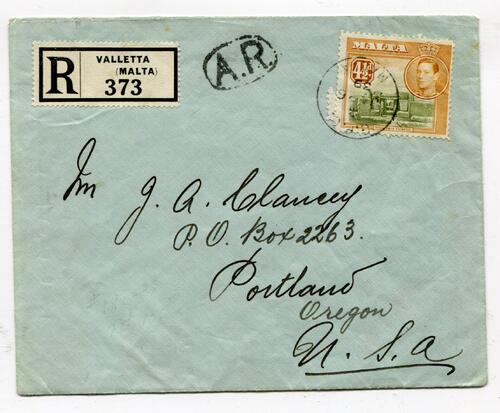 R
VALLETTA
(MALTA)
373
A.R
MALTA
4½
Mr J. A. Clancey
P.O. Box 2263.
Portland
Oregon
U. S. A